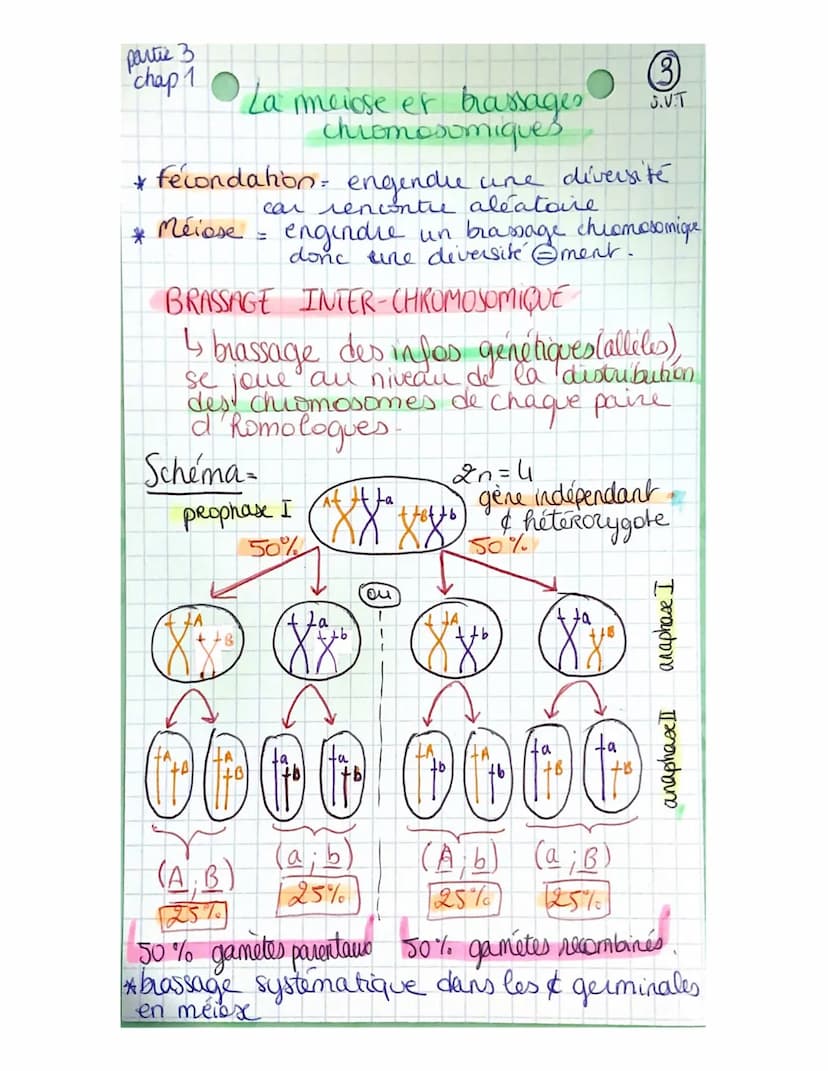 partie 3
chap 1
3
S.V.T
La meiose et brassages
chromosomiques
* Fécondation = engendre une diversité
car rencontre aléatoire
* Méiose = engendre un brassage chromosomique
donc une diversité =ment.
BRASSAGE INTER-CHROMOSOMIQUE
↳ brassage des infos génétiques (allèles)
se joue au niveau de la distribution
des chromosomes de chaque paire
d'homologues.
Schéma =
2n = 4
prophase I
gène indépendant
¢ hétérozygote
A a B b
50%
50%
ou
A B
a b
A b
a B
anaphase I
A B
A B
a b
a b
A b
A b
a B
a B
anaphase II
(A ; B)
(a ; b)
(A ; b)
(a ; B)
25%
25%
25%
25%
50% gamètes parentaux
50% gamètes recombinés.
* brassage systématique dans les ¢ germinales
en méiose